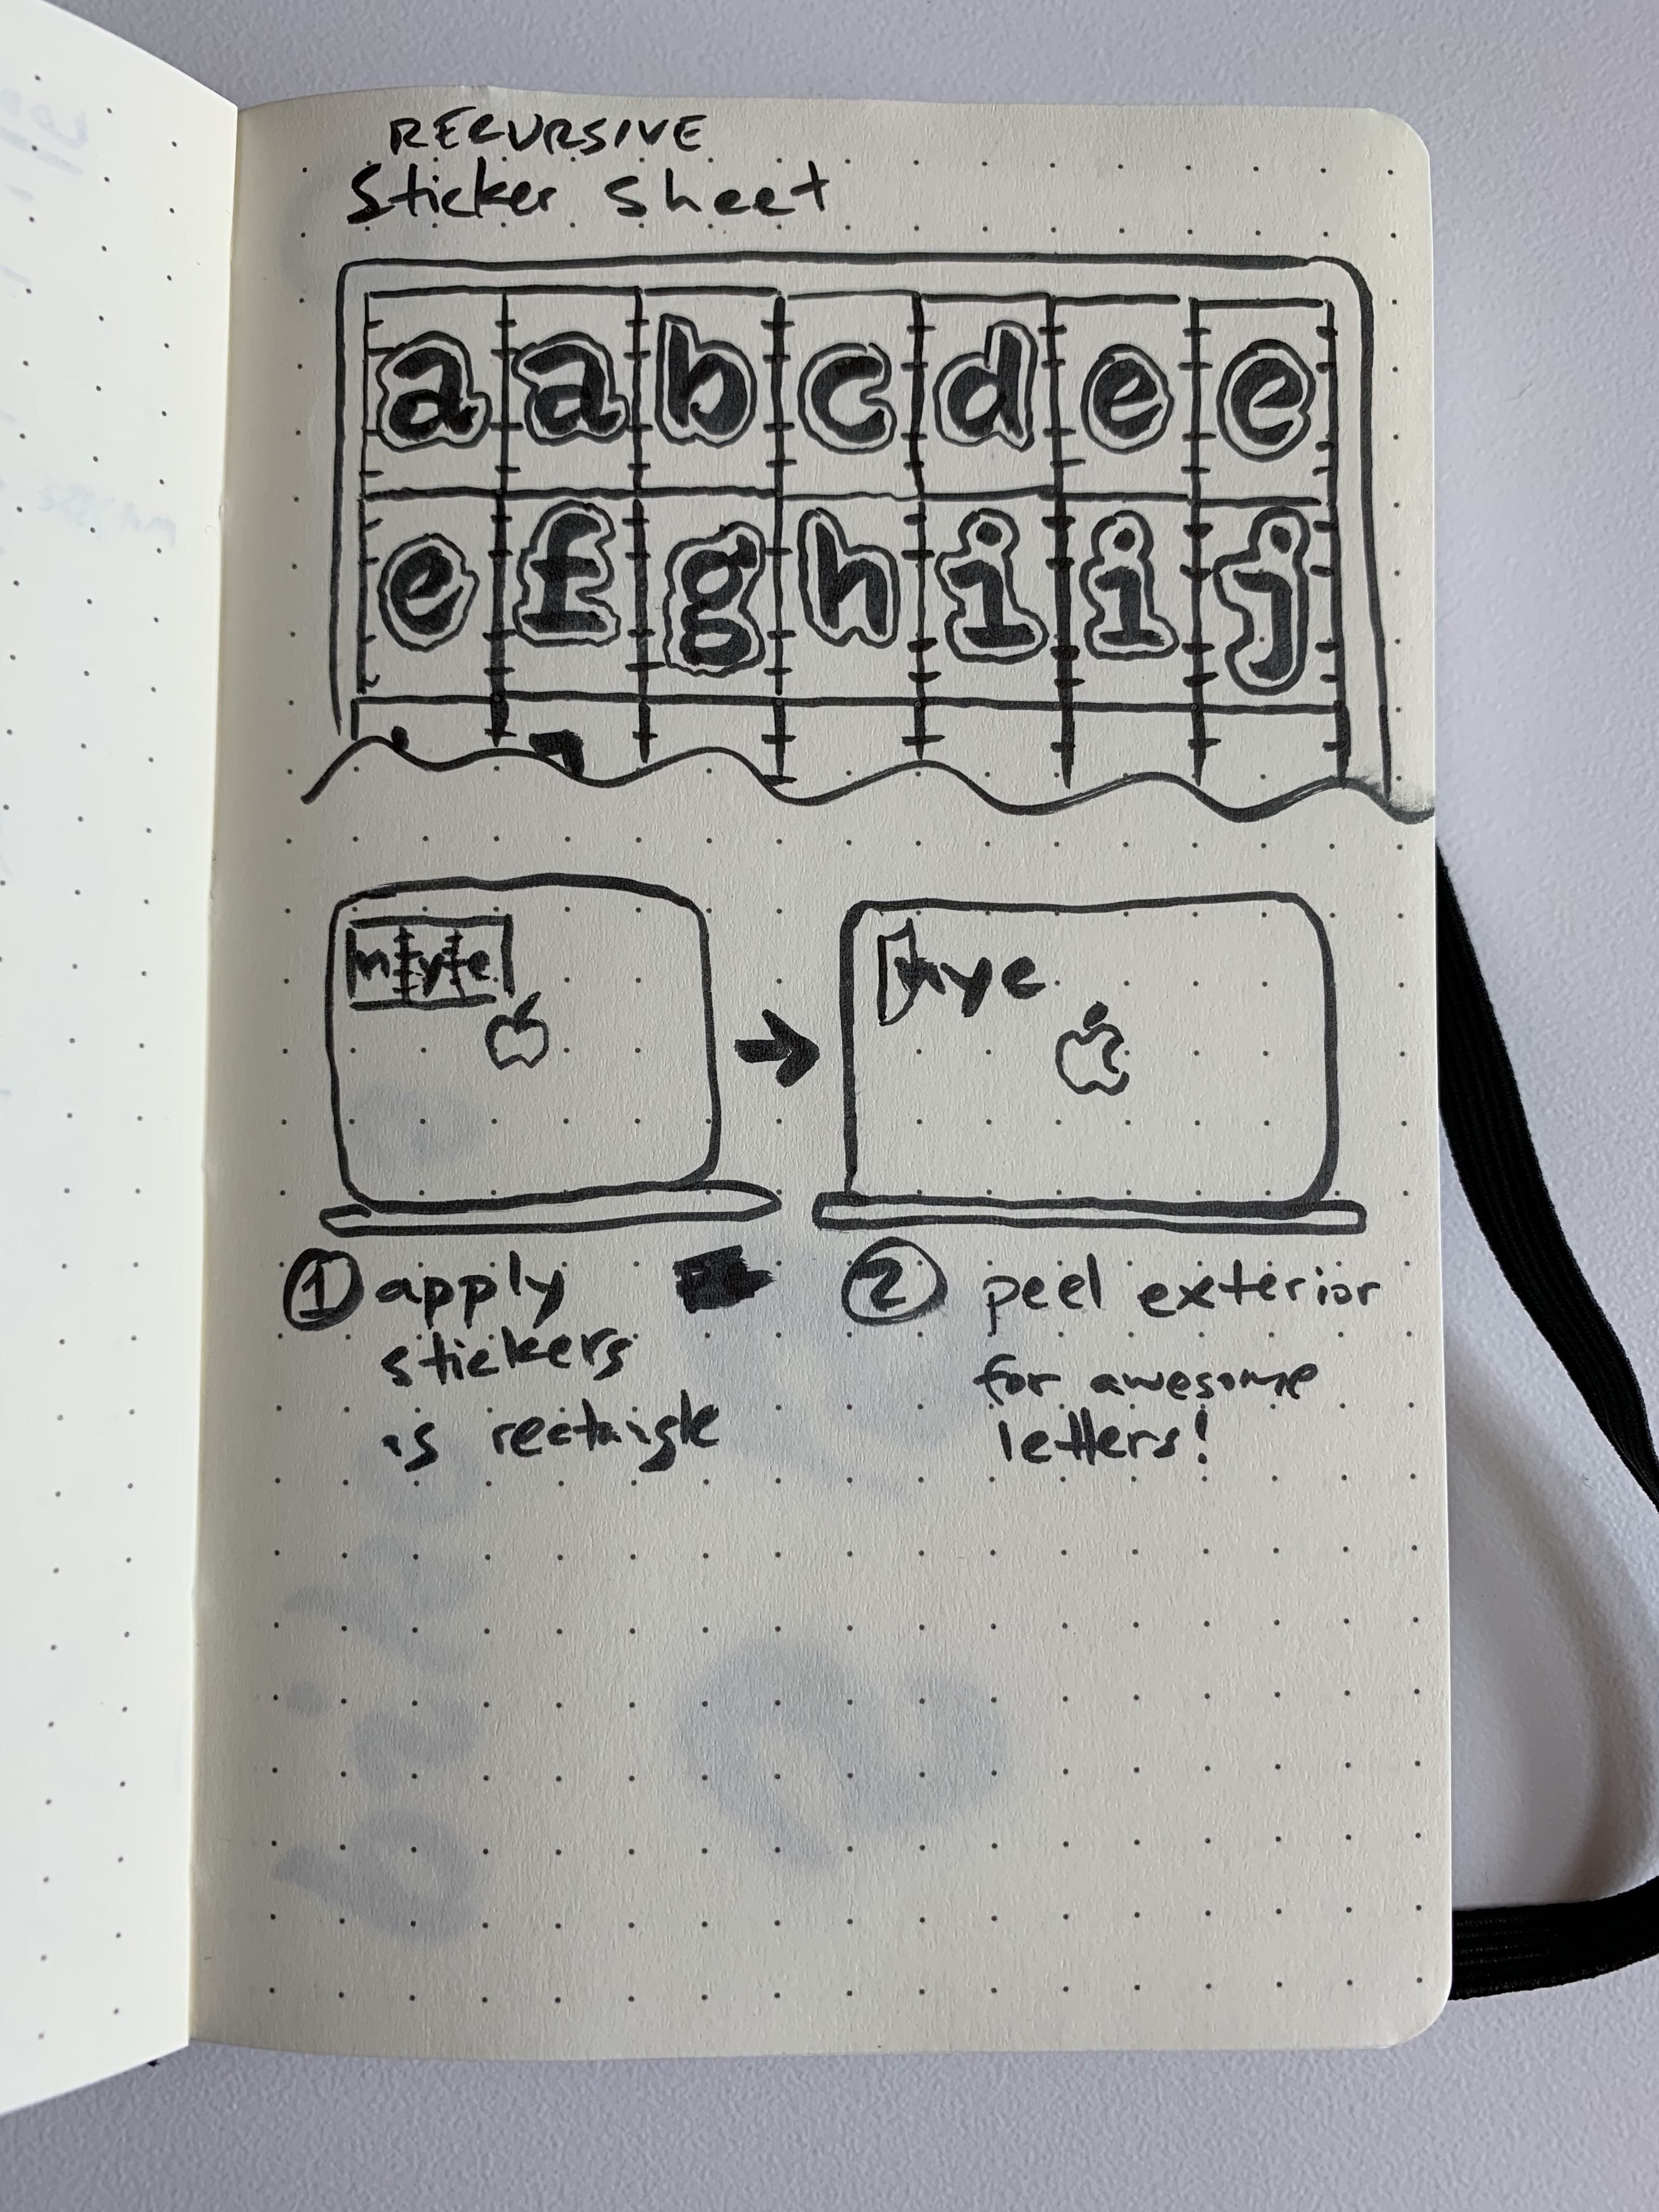 RECURSIVE
Sticker Sheet
a a b c d e e
e f g h i i j
nye
nye
1 apply
stickers
is rectangle
2 peel exterior
for awesome
letters!